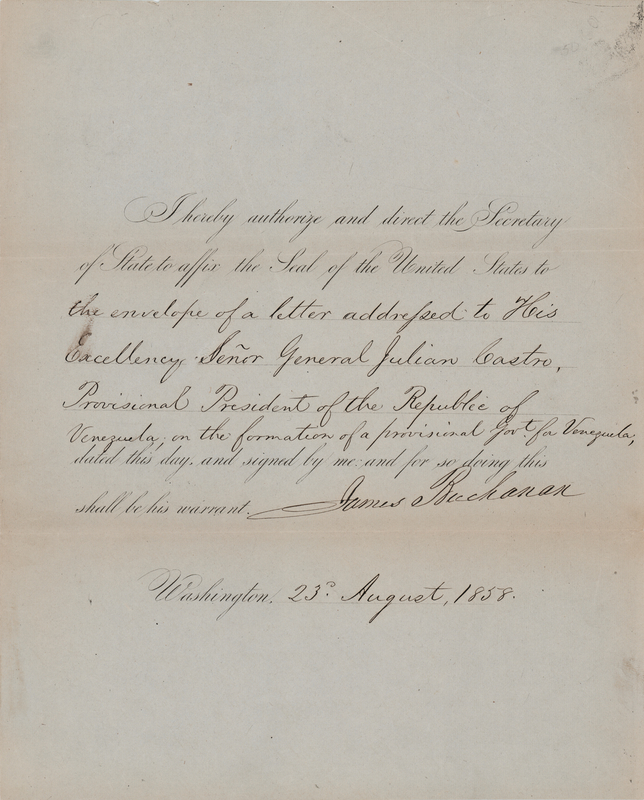 I hereby authorize and direct the Secretary
of State to affix the Seal of the United States to
the envelope of a letter addressed to His
Excellency, Señor General Julian Castro,
Provisional President of the Republic of
Venezuela, on the formation of a provisional Govt. for Venezuela,
dated this day, and signed by me: and for so doing this
shall be his warrant. James Buchanan
Washington, 23d. August, 1858.